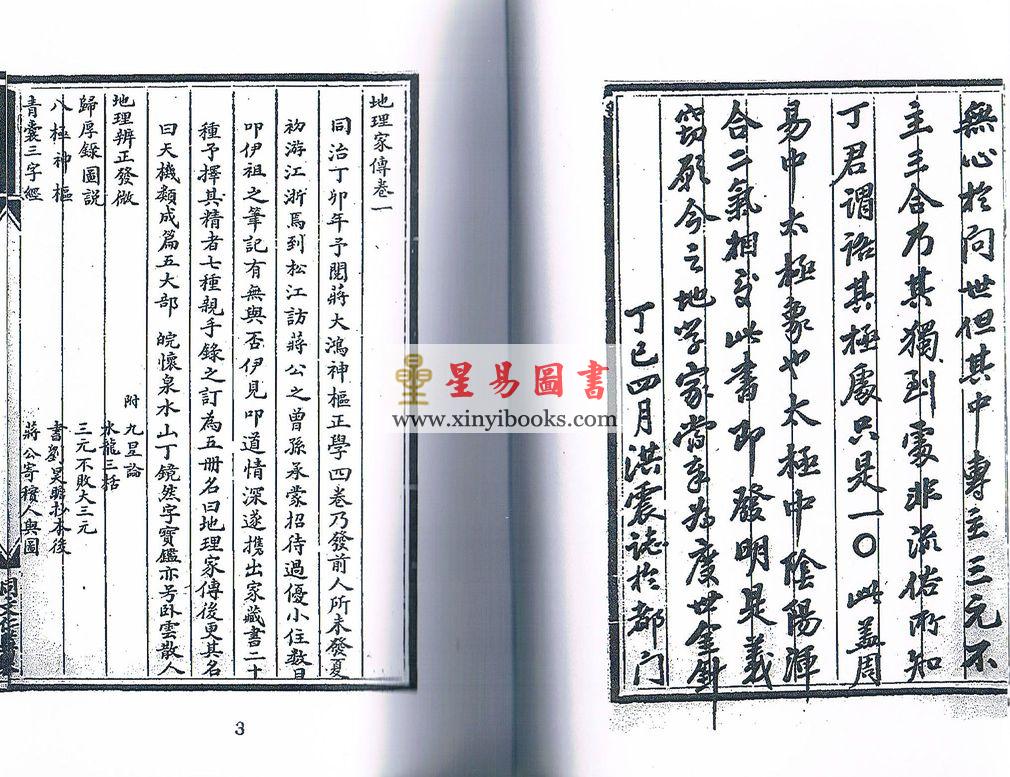 無心於問世但其中專主三元不
主三合乃其獨到處非流俗所知
丁君謂語其極處只是一〇此蓋周
易中太極象也太極中陰陽渾
合二氣相交此書即發明是義
竊願今之地學家當奉為度世金鍼
丁巳四月洪震誌於都門
地理家傳卷一
同治丁卯年予閱蔣大鴻神樞正學四卷乃發前人所未發夏
初游江浙焉到松江訪蔣公之曾孫承蒙招待過優小住数日
叩伊祖之筆記有無與否伊見叩道情深遂携出家藏書二十
種予擇其精者七種親手錄之訂為五冊名曰地理家傳後更其名
曰天機類成篇五大部 皖懷泉水山丁鏡然字寶鑑亦号卧雲散人
地理辨正發微 附 九星論
水龍三括
歸厚錄圖說 三元不敗大三元
八極神樞 書劉昊聯抄本後
青囊三字經 蔣公寄穣人與圖
3
星易圖書
www.xinyibooks.com